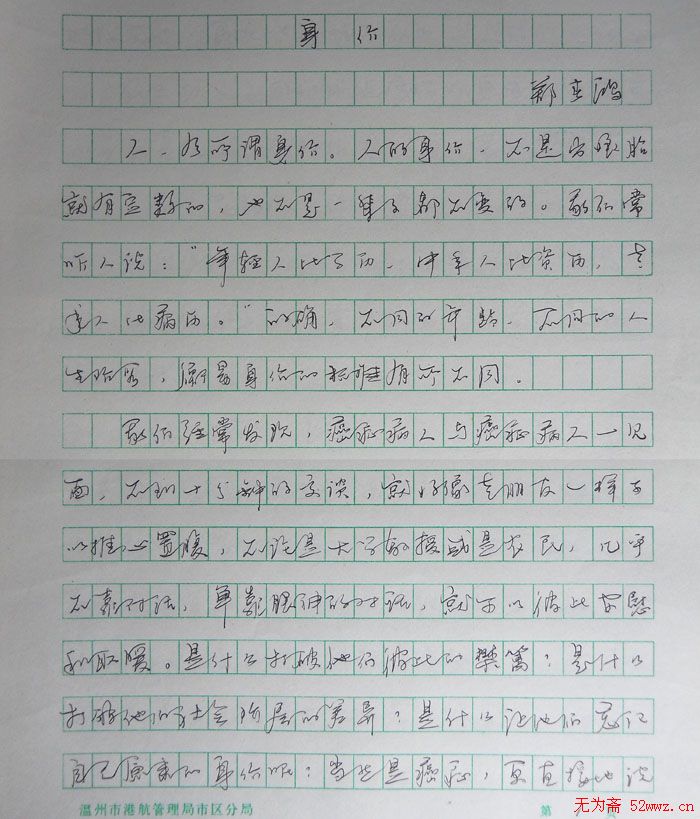 身价
郑亚鸿
人，有所谓身价。人的身价，不是出娘胎
就有定数的，也不是一辈子都不变的。我们常
听人说：“年轻人比学历，中年人比资历，老
年人比病历。”的确，不同的年龄，不同的人
生阶段，衡量身价的标准有所不同。
我们经常发现，癌症病人与癌症病人一见
面，不到十分钟的交谈，就好像老朋友一样可
以推心置腹，不论是大学教授或是农民，几乎
不靠对话，单靠眼神的对话，就可以彼此安慰
和取暖。是什么打破他们彼此的樊篱？是什么
打破他们社会阶层的差异？是什么让他们忘记
自己原来的身价呢？当然是癌症，更直接地说
温州市港航管理局市区分局
第 页
无为斋 52wwz.cn